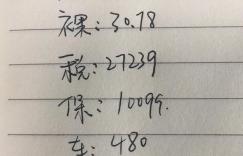 裸：30.78
税：27239
保：10099.
车：480